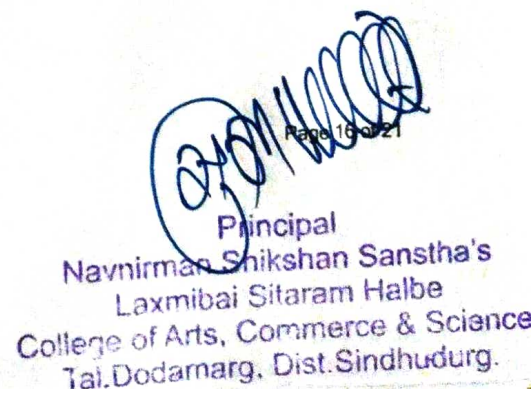 Page 16 of 21
Principal
Navnirman Shikshan Sanstha's
Laxmibai Sitaram Halbe
College of Arts, Commerce & Science
Tal.Dodamarg, Dist.Sindhudurg.